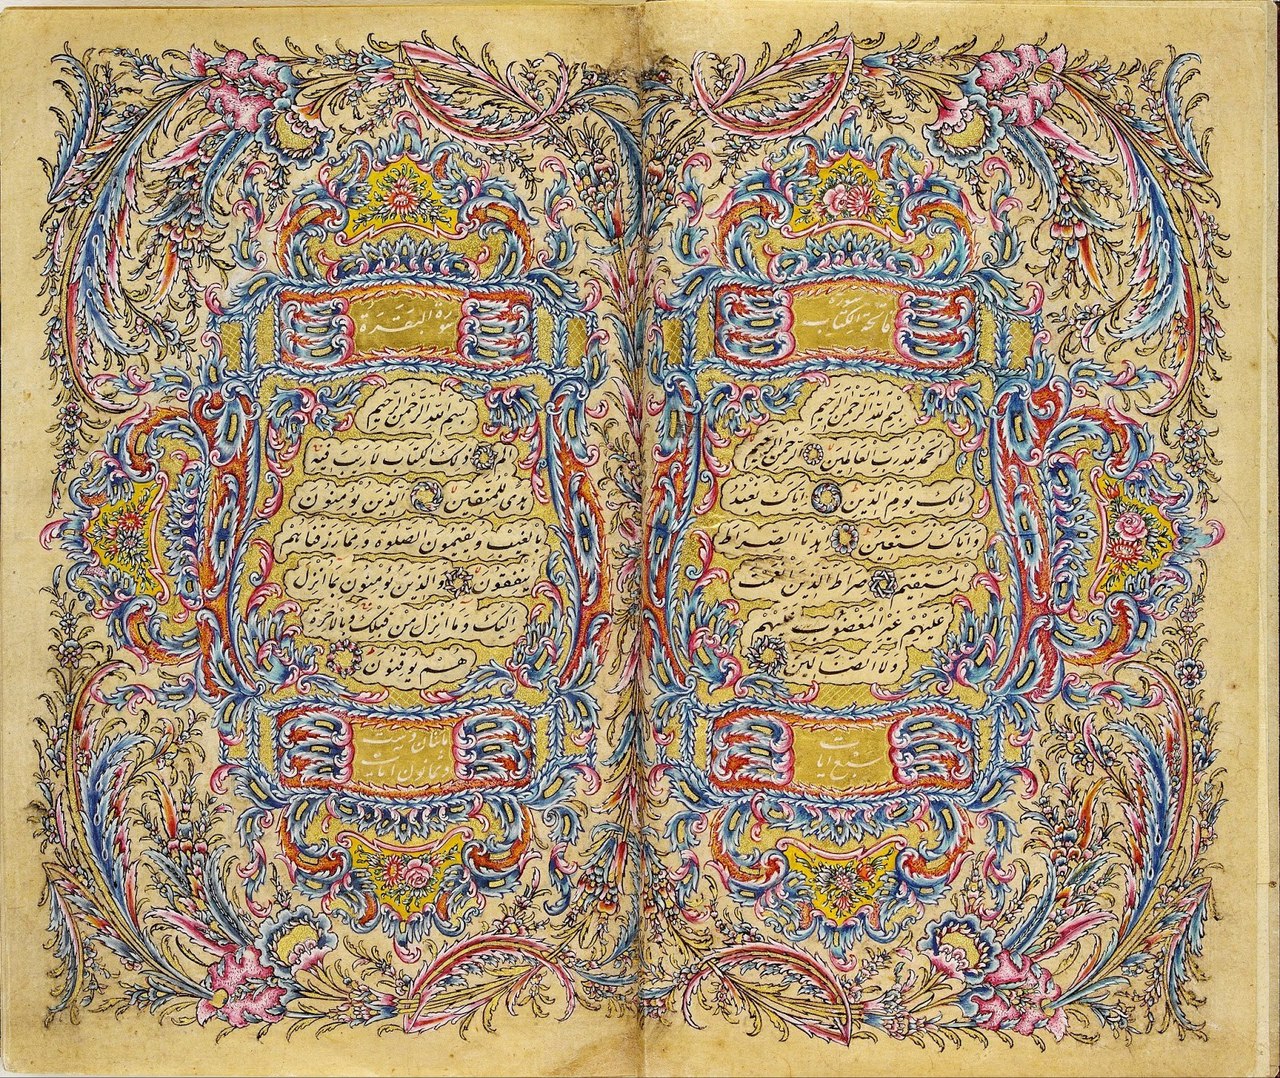 سورة
فاتحة الكتاب
بسم الله الرحمن الرحيم
الحمد لله رب العالمين الرحمن الرحيم
مالك يوم الدين اياك نعبد
واياك نستعين اهدنا الصراط
المستقيم صراط الذين انعمت
عليهم غير المغضوب عليهم
ولا الضالين
سبع آيات
سورة البقرة
بسم الله الرحمن الرحيم
الم ذلك الكتاب لا ريب فيه
هدى للمتقين الذين يؤمنون
بالغيب ويقيمون الصلوة ومما رزقناهم
ينفقون والذين يؤمنون بما انزل
اليك وما انزل من قبلك وبالآخرة
هم يوقنون
مائتان وست
وثمانون آيات